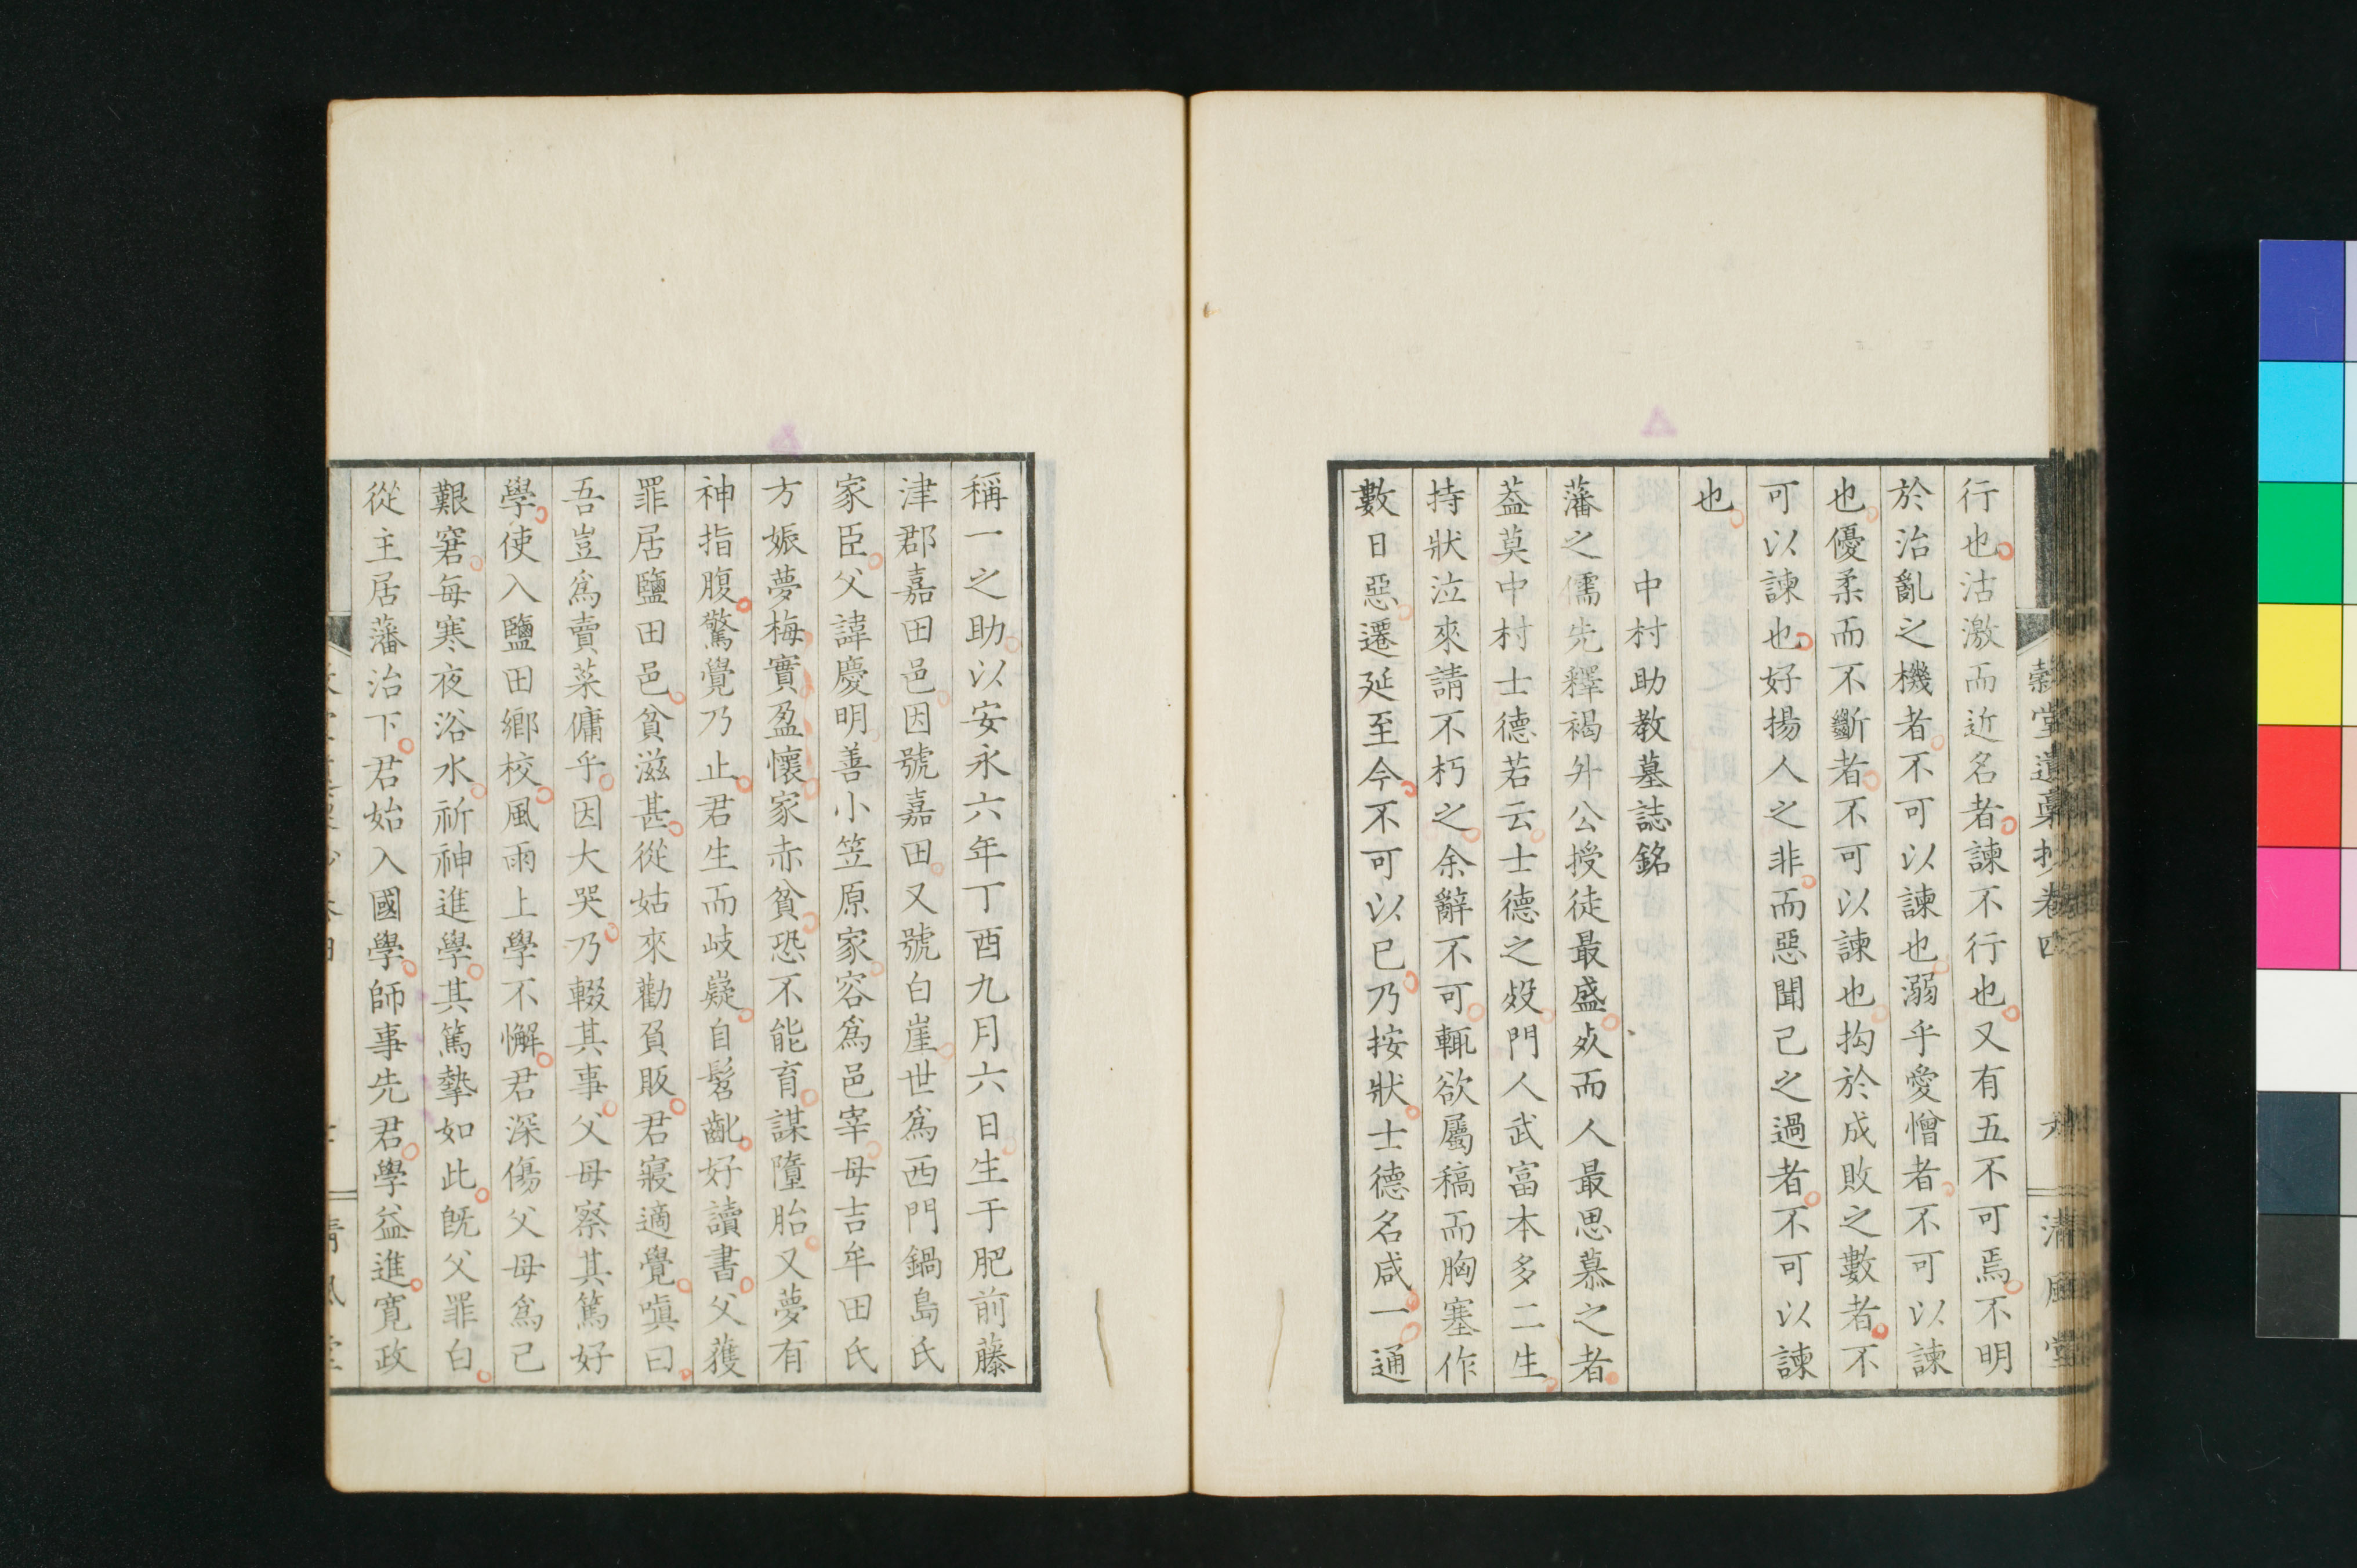 穀堂遺稾抄卷四
淸風堂
行也沽激而近名者諫不行也又有五不可焉不明
於治亂之機者不可以諫也溺乎愛憎者不可以諫
也優柔而不斷者不可以諫也抅於成敗之數者不
可以諫也好揚人之非而惡聞己之過者不可以諫
也
中村助教墓誌銘
藩之儒先釋褐外公授徒最盛㱕而人最思慕之者
葢莫中村士德若云士德之歿門人武富本多二生
持狀泣來請不朽之余辭不可輒欲屬稿而胸塞作
數日惡遷延至今不可以已乃按狀士德名咸一通
稱一之助以安永六年丁酉九月六日生于肥前藤
津郡嘉田邑因號嘉田又號白崖世爲西門鍋島氏
家臣父諱慶明善小笠原家容爲邑宰母吉牟田氏
方娠夢梅實盈懷家赤貧恐不能育謀墮胎又夢有
神指腹驚覺乃止君生而岐嶷自髫齔好讀書父獲
罪居鹽田邑貧滋甚從姑來勸負販君寢適覺嗔曰
吾豈爲賣菜傭乎因大哭乃輟其事父母察其篤好
學使入鹽田鄉校風雨上學不懈君深傷父母爲己
艱窘每寒夜浴水祈神進學其篤摯如此既父罪白
從主居藩治下君始入國學師事先君學益進寬政